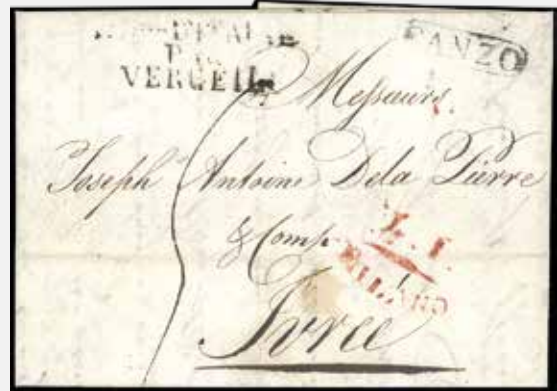 D'ITALIE
PAR
VERCEIL
CANZO
Messieurs
Joseph Antoine Dela Pierre
& Comp.
L. I.
MILANO
Ivrée